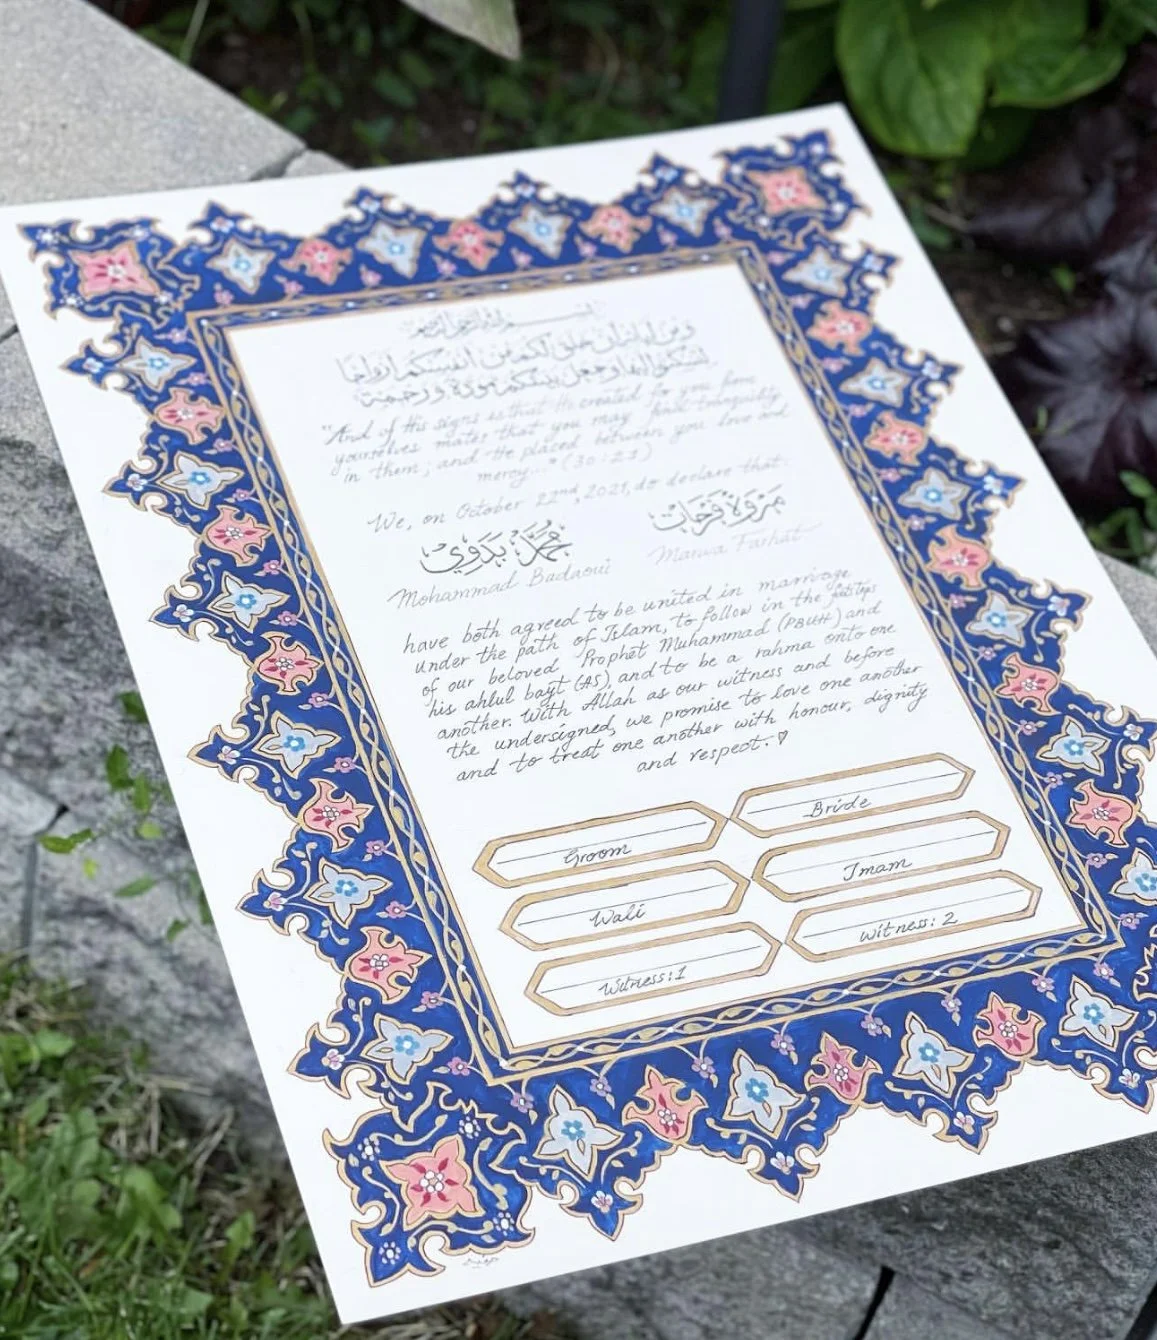 بسم الله الرحمن الرحيم
ومن آياته أن خلق لكم من أنفسكم أزواجا
لتسكنوا إليها وجعل بينكم مودة ورحمة
"And of His signs is that He created for you from
yourselves mates that you may find tranquility
in them; and He placed between you love and
mercy..." (30:21)
We, on October 22nd, 2021, do declare that:
مُحَمَّد بَدَوِي
Mohammad Badaoui
مَرْوَة فَرْحَات
Marwa Farhat
have both agreed to be united in marriage
under the path of Islam, to follow in the footsteps
of our beloved Prophet Muhammad (PBUH) and
his ahlul bayt (AS), and to be a rahma onto one
another. With Allah as our witness and before
the undersigned, we promise to love one another
and to treat one another with honour, dignity
and respect.♡
Groom
Bride
Wali
Imam
Witness:1
Witness: 2